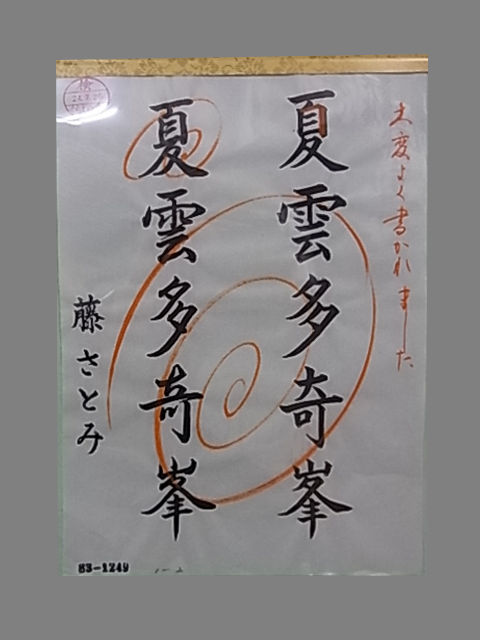 大変よく書かれました
夏雲多奇峯
夏雲多奇峯
藤さとみ
83-1249